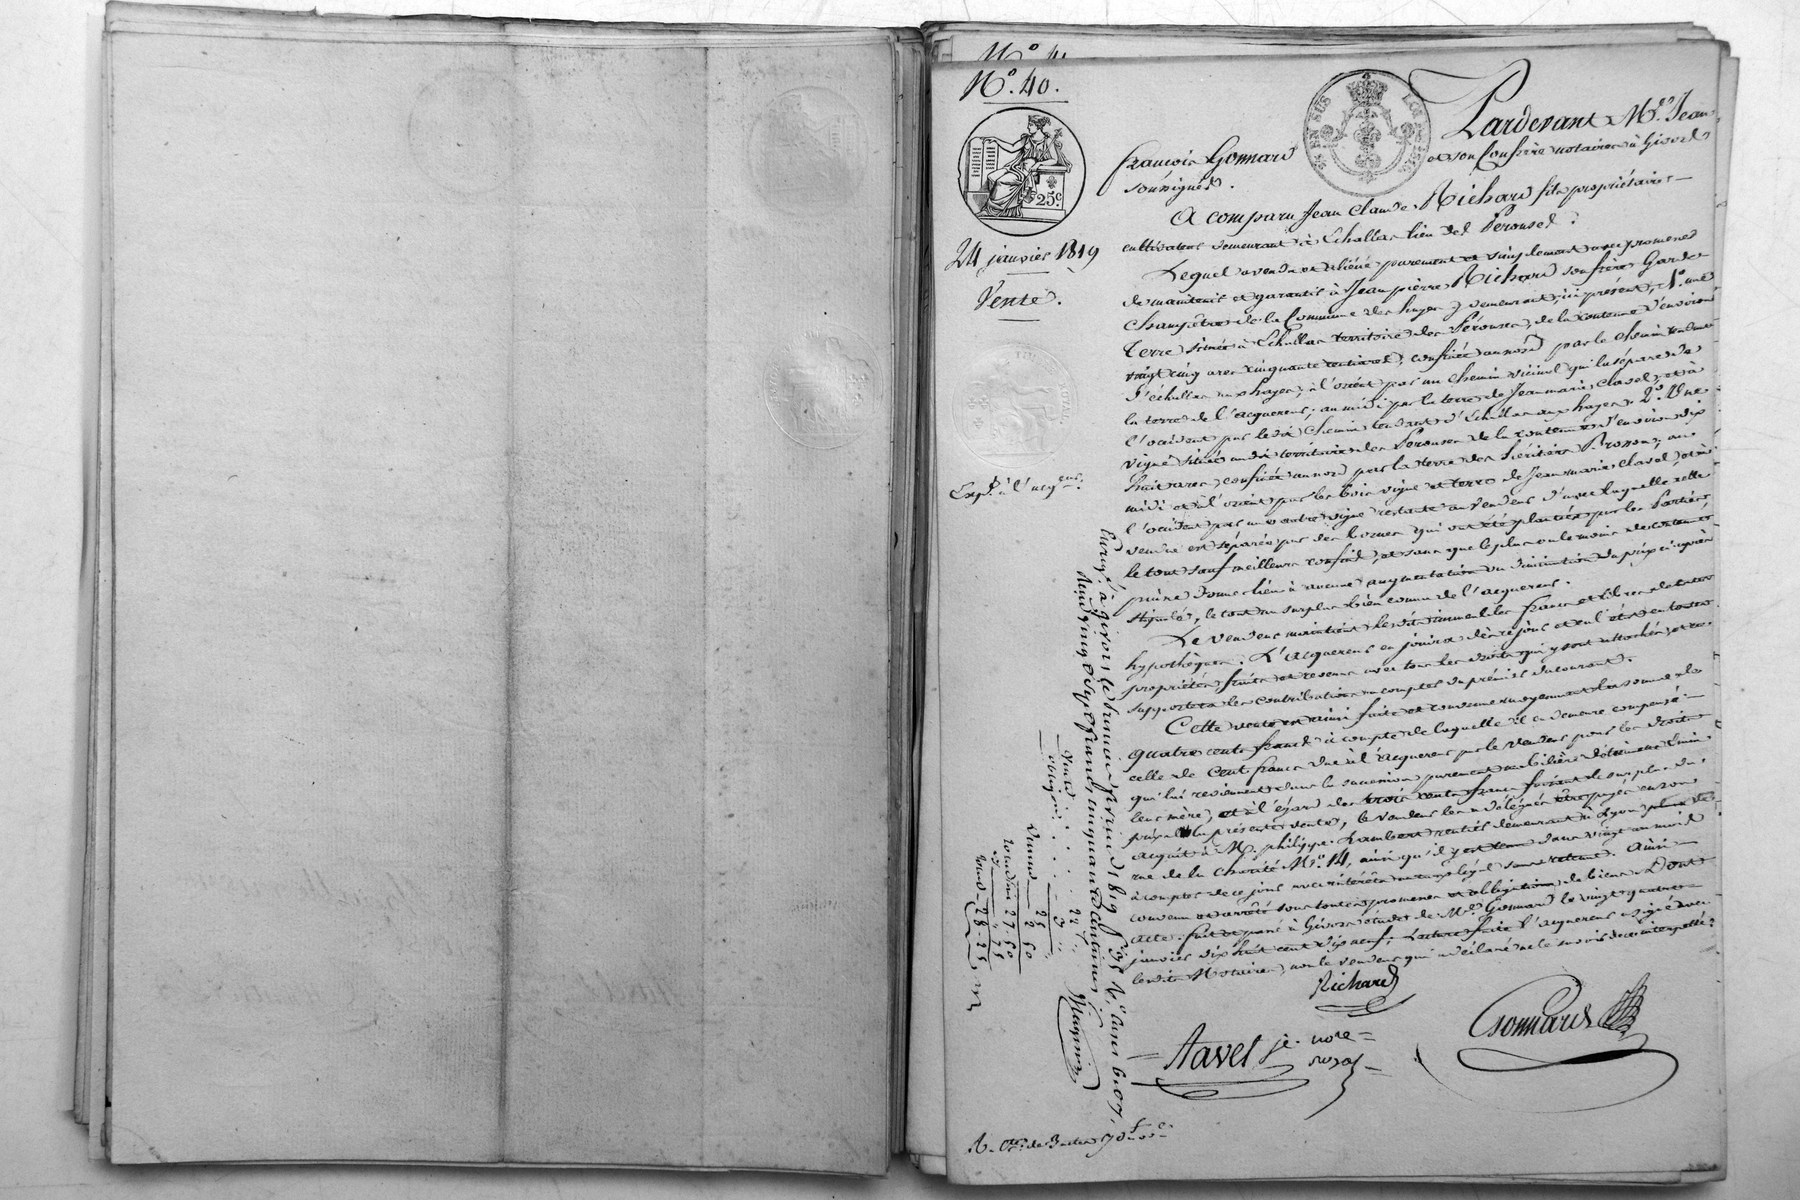 N.° 40.
25c
24 janvier 1819
Vente.
Exp. à l'acq.
Pardevant M.e Jean
françois Gonnard et son Confrère notaires à Givors
soussignés.
A comparu Jean Claude Richard fils propriétaire
cultivateur demeurant à Echallas lieu des Perouses.
Lequel a vendu et aliéné purement et simplement avec promesse
de maintenir et garantir à Jean pierre Richard son frère Garde
Champêtre de la Commune des hayes y demeurant, ici présent, 1.° une
Terre située à Echallas territoire des Pérouses, de la contenue d'environ
vingt cinq ares cinquante centiares, confinée au nord par le Chemin tendant
d'échallas aux hayes, à l'orient par un Chemin vicinal qui la sépare de
la terre de l'acquereur, au midi par la terre de Jean marie Clavel, et à
l'occident par ledit Chemin tendant d'Echallas aux hayes. 2.° Une
vigne située audit territoire des Perouses de la contenue d'environ dix
huit ares, confinée au nord par la terre des héritiers, au
midi et à l'orient par les bois vigne et terre de Jean marie Clavel, et à
l'occident par une autre vigne restante au vendeur d'avec laquelle celle
vendue est séparée par des bornes qui ont été plantées par les parties,
le tout sauf meilleurs confins, et sans que le plus ou le moins de contenue
puisse donner lieu à aucune augmentation ou diminution du prix ci après
stipulé, le tout au surplus bien connu de l'acquereur.
Le vendeur maintient lesdits immeubles francs et libres de toutes
hypothèques. L'acquereur en jouira dès ce jour et en l'état en toute
propriété, fruits et revenus avec tous les droits qui y sont attachés, et en
supportera les contributions à compter du premier du courant.
Cette vente est ainsi faite et convenue moyennant la somme de
quatre cents francs à compte de laquelle il en demeure compensé
celle de Cent francs due à l'acquereur par le vendeur pour les droits
qui lui reviennent dans la succession purement mobilière de
leur mère, et à l'égard des trois cents francs faisant le surplus du
prix de la présente vente, le vendeur les a délégués être payés en son
acquit à M. philippe Lambert rentier demeurant à Lyon place de
rue de la Charité N.° 14, ainsi qu'il y est tenu dans vingt un mois
à compter de ce jour avec intérêts au taux légal sans retenue. Ainsi
convenu et arrêté sous toutes promesses et obligations de biens. Dont
acte. fait et passé à Givors étude de M.e Gonnard le vingt quatre
janvier dix huit cent dix neuf, Lecture faite l'acquereur a signé avec
lesdits Notaires, non le vendeur qui a déclaré ne le savoir de ce interpellé.
Richard
Gonnard
Favel je. nore
Enreg. à givors le 1819
vingt sept francs cinquante centimes
27 50
2 75